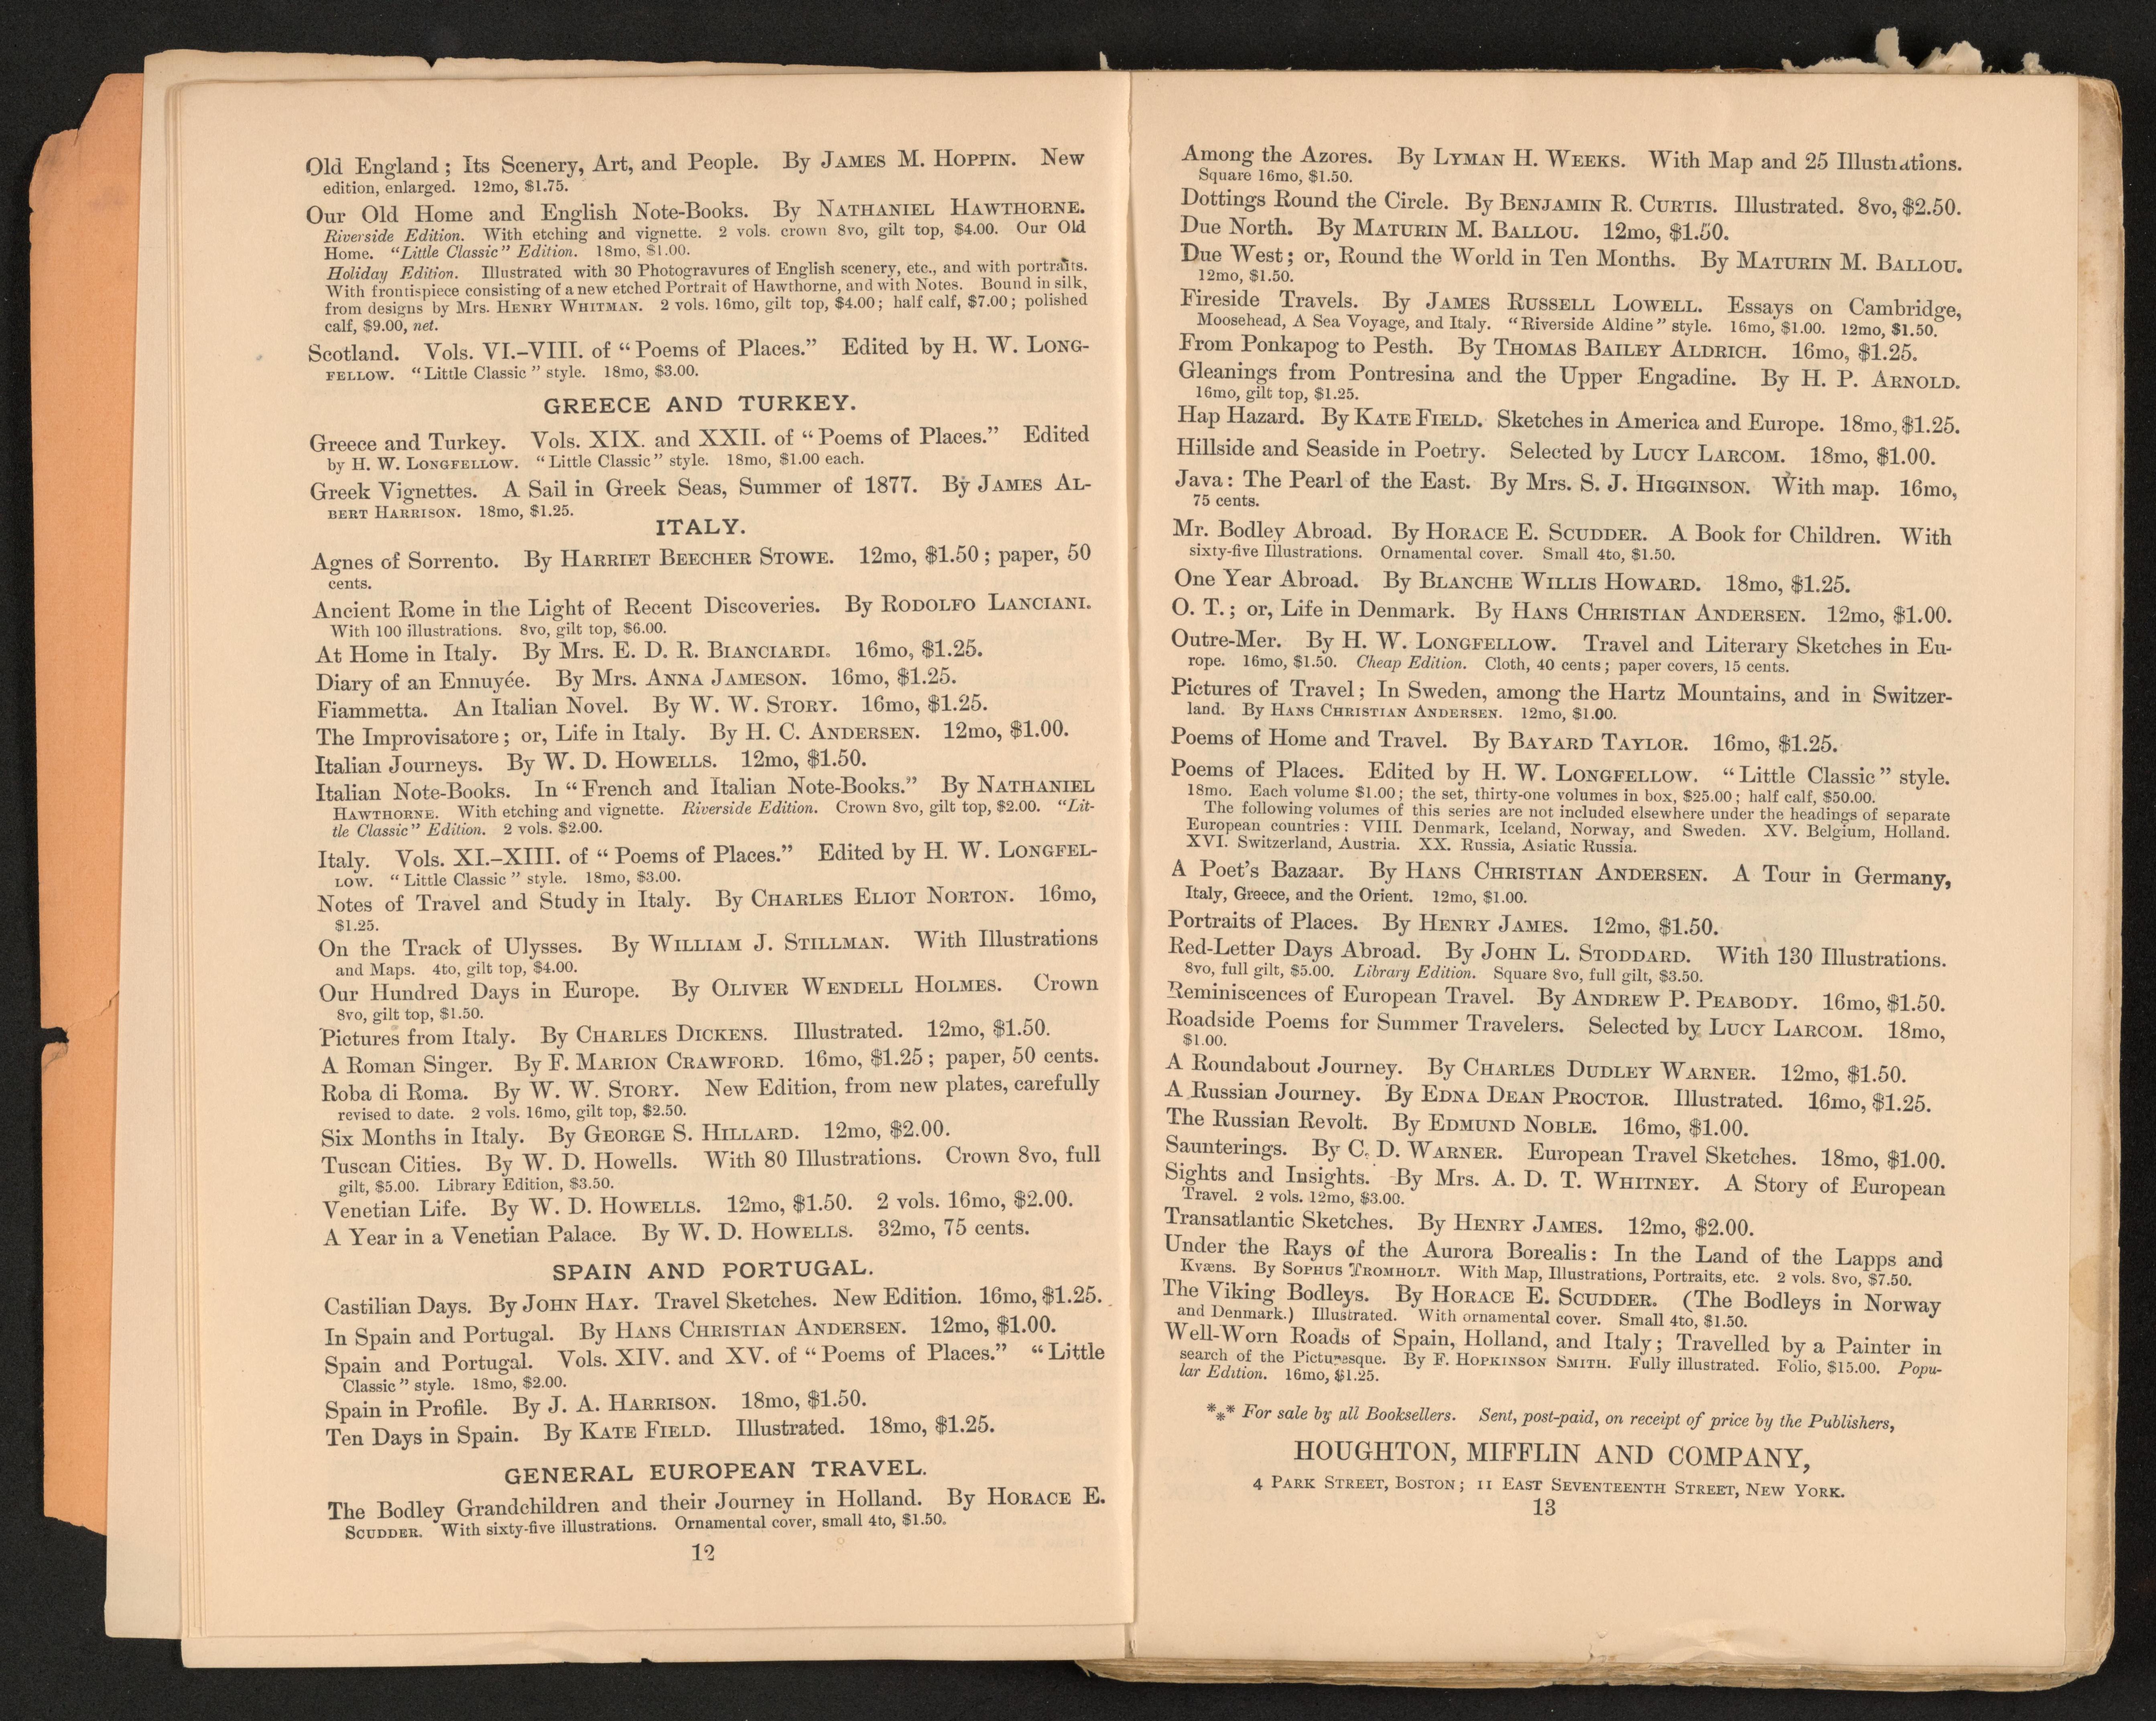 Old England; Its Scenery, Art, and People. By JAMES M. HOPPIN. New
edition, enlarged. 12mo, $1.75.
Our Old Home and English Note-Books. By NATHANIEL HAWTHORNE.
Riverside Edition. With etching and vignette. 2 vols. crown 8vo, gilt top, $4.00. Our Old
Home. "Little Classic" Edition. 18mo, $1.00.
Holiday Edition. Illustrated with 30 Photogravures of English scenery, etc., and with portraits.
With frontispiece consisting of a new etched Portrait of Hawthorne, and with Notes. Bound in silk,
from designs by Mrs. HENRY WHITMAN. 2 vols. 16mo, gilt top, $4.00; half calf, $7.00; polished
calf, $9.00, net.
Scotland. Vols. VI.–VIII. of "Poems of Places." Edited by H. W. LONG-
FELLOW. "Little Classic" style. 18mo, $3.00.
GREECE AND TURKEY.
Greece and Turkey. Vols. XIX. and XXII. of "Poems of Places." Edited
by H. W. LONGFELLOW. "Little Classic" style. 18mo, $1.00 each.
Greek Vignettes. A Sail in Greek Seas, Summer of 1877. By JAMES AL-
BERT HARRISON. 18mo, $1.25.
ITALY.
Agnes of Sorrento. By HARRIET BEECHER STOWE. 12mo, $1.50; paper, 50
cents.
Ancient Rome in the Light of Recent Discoveries. By RODOLFO LANCIANI.
With 100 illustrations. 8vo, gilt top, $6.00.
At Home in Italy. By Mrs. E. D. R. BIANCIARDI. 16mo, $1.25.
Diary of an Ennuyée. By Mrs. ANNA JAMESON. 16mo, $1.25.
Fiammetta. An Italian Novel. By W. W. STORY. 16mo, $1.25.
The Improvisatore; or, Life in Italy. By H. C. ANDERSEN. 12mo, $1.00.
Italian Journeys. By W. D. HOWELLS. 12mo, $1.50.
Italian Note-Books. In "French and Italian Note-Books." By NATHANIEL
HAWTHORNE. With etching and vignette. Riverside Edition. Crown 8vo, gilt top, $2.00. "Lit-
tle Classic" Edition. 2 vols. $2.00.
Italy. Vols. XI.–XIII. of "Poems of Places." Edited by H. W. LONGFEL-
LOW. "Little Classic" style. 18mo, $3.00.
Notes of Travel and Study in Italy. By CHARLES ELIOT NORTON. 16mo,
$1.25.
On the Track of Ulysses. By WILLIAM J. STILLMAN. With Illustrations
and Maps. 4to, gilt top, $4.00.
Our Hundred Days in Europe. By OLIVER WENDELL HOLMES. Crown
8vo, gilt top, $1.50.
Pictures from Italy. By CHARLES DICKENS. Illustrated. 12mo, $1.50.
A Roman Singer. By F. MARION CRAWFORD. 16mo, $1.25; paper, 50 cents.
Roba di Roma. By W. W. STORY. New Edition, from new plates, carefully
revised to date. 2 vols. 16mo, gilt top, $2.50.
Six Months in Italy. By GEORGE S. HILLARD. 12mo, $2.00.
Tuscan Cities. By W. D. Howells. With 80 Illustrations. Crown 8vo, full
gilt, $5.00. Library Edition, $3.50.
Venetian Life. By W. D. HOWELLS. 12mo, $1.50. 2 vols. 16mo, $2.00.
A Year in a Venetian Palace. By W. D. HOWELLS. 32mo, 75 cents.
SPAIN AND PORTUGAL.
Castilian Days. By JOHN HAY. Travel Sketches. New Edition. 16mo, $1.25.
In Spain and Portugal. By HANS CHRISTIAN ANDERSEN. 12mo, $1.00.
Spain and Portugal. Vols. XIV. and XV. of "Poems of Places." "Little
Classic" style. 18mo, $2.00.
Spain in Profile. By J. A. HARRISON. 18mo, $1.50.
Ten Days in Spain. By KATE FIELD. Illustrated. 18mo, $1.25.
GENERAL EUROPEAN TRAVEL.
The Bodley Grandchildren and their Journey in Holland. By HORACE E.
SCUDDER. With sixty-five illustrations. Ornamental cover, small 4to, $1.50.
12
Among the Azores. By LYMAN H. WEEKS. With Map and 25 Illustrations.
Square 16mo, $1.50.
Dottings Round the Circle. By BENJAMIN R. CURTIS. Illustrated. 8vo, $2.50.
Due North. By MATURIN M. BALLOU. 12mo, $1.50.
Due West; or, Round the World in Ten Months. By MATURIN M. BALLOU.
12mo, $1.50.
Fireside Travels. By JAMES RUSSELL LOWELL. Essays on Cambridge,
Moosehead, A Sea Voyage, and Italy. "Riverside Aldine" style. 16mo, $1.00. 12mo, $1.50.
From Ponkapog to Pesth. By THOMAS BAILEY ALDRICH. 16mo, $1.25.
Gleanings from Pontresina and the Upper Engadine. By H. P. ARNOLD.
16mo, gilt top, $1.25.
Hap Hazard. By KATE FIELD. Sketches in America and Europe. 18mo, $1.25.
Hillside and Seaside in Poetry. Selected by LUCY LARCOM. 18mo, $1.00.
Java: The Pearl of the East. By Mrs. S. J. HIGGINSON. With map. 16mo,
75 cents.
Mr. Bodley Abroad. By HORACE E. SCUDDER. A Book for Children. With
sixty-five Illustrations. Ornamental cover. Small 4to, $1.50.
One Year Abroad. By BLANCHE WILLIS HOWARD. 18mo, $1.25.
O. T.; or, Life in Denmark. By HANS CHRISTIAN ANDERSEN. 12mo, $1.00.
Outre-Mer. By H. W. LONGFELLOW. Travel and Literary Sketches in Eu-
rope. 16mo, $1.50. Cheap Edition. Cloth, 40 cents; paper covers, 15 cents.
Pictures of Travel; In Sweden, among the Hartz Mountains, and in Switzer-
land. By HANS CHRISTIAN ANDERSEN. 12mo, $1.00.
Poems of Home and Travel. By BAYARD TAYLOR. 16mo, $1.25.
Poems of Places. Edited by H. W. LONGFELLOW. "Little Classic" style.
18mo. Each volume $1.00; the set, thirty-one volumes in box, $25.00; half calf, $50.00.
The following volumes of this series are not included elsewhere under the headings of separate
European countries: VIII. Denmark, Iceland, Norway, and Sweden. XV. Belgium, Holland.
XVI. Switzerland, Austria. XX. Russia, Asiatic Russia.
A Poet's Bazaar. By HANS CHRISTIAN ANDERSEN. A Tour in Germany,
Italy, Greece, and the Orient. 12mo, $1.00.
Portraits of Places. By HENRY JAMES. 12mo, $1.50.
Red-Letter Days Abroad. By JOHN L. STODDARD. With 130 Illustrations.
8vo, full gilt, $5.00. Library Edition. Square 8vo, full gilt, $3.50.
Reminiscences of European Travel. By ANDREW P. PEABODY. 16mo, $1.50.
Roadside Poems for Summer Travelers. Selected by LUCY LARCOM. 18mo,
$1.00.
A Roundabout Journey. By CHARLES DUDLEY WARNER. 12mo, $1.50.
A Russian Journey. By EDNA DEAN PROCTOR. Illustrated. 16mo, $1.25.
The Russian Revolt. By EDMUND NOBLE. 16mo, $1.00.
Saunterings. By C. D. WARNER. European Travel Sketches. 18mo, $1.00.
Sights and Insights. By Mrs. A. D. T. WHITNEY. A Story of European
Travel. 2 vols. 12mo, $3.00.
Transatlantic Sketches. By HENRY JAMES. 12mo, $2.00.
Under the Rays of the Aurora Borealis: In the Land of the Lapps and
Kvæns. By SOPHUS TROMHOLT. With Map, Illustrations, Portraits, etc. 2 vols. 8vo, $7.50.
The Viking Bodleys. By HORACE E. SCUDDER. (The Bodleys in Norway
and Denmark.) Illustrated. With ornamental cover. Small 4to, $1.50.
Well-Worn Roads of Spain, Holland, and Italy; Travelled by a Painter in
search of the Picturesque. By F. HOPKINSON SMITH. Fully illustrated. Folio, $15.00. Popu-
lar Edition. 16mo, $1.25.
*** For sale by all Booksellers. Sent, post-paid, on receipt of price by the Publishers,
HOUGHTON, MIFFLIN AND COMPANY,
4 PARK STREET, BOSTON; 11 EAST SEVENTEENTH STREET, NEW YORK.
13